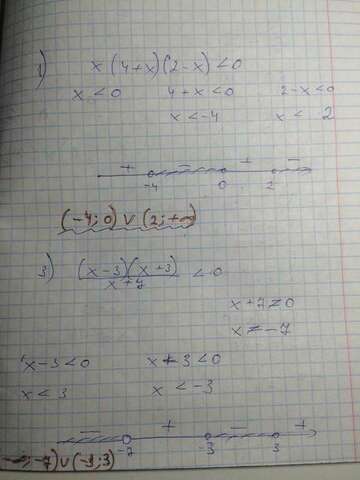 1) x(4+x)(2-x)<0
x<0 4+x<0 2-x<0
x<-4 x< 2
+ - + -
-4 0 2
(-4;0) ∨ (2;+∞)
3) (x-3)(x+3)/x+7 <0
x+7≠0
x≠-7
x-3<0 x+3<0
x<3 x<-3
- + - +
-7 -3 3
;-7)∪(-3;3)